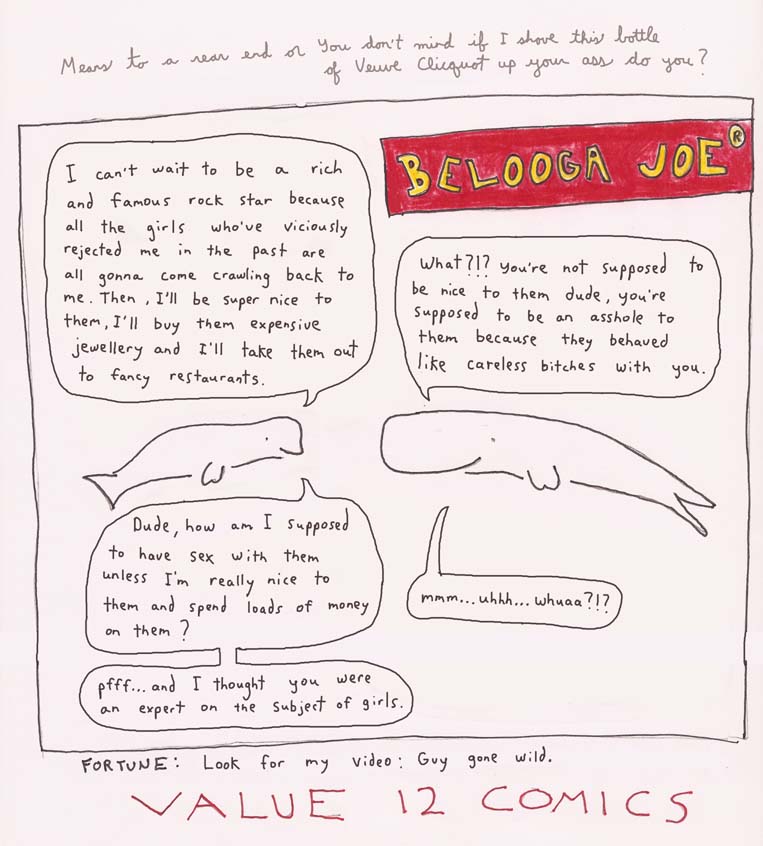 Means to a rear end or You don't mind if I shove this bottle
of Veuve Clicquot up your ass do you?
BELOOGA JOE®
I can't wait to be a rich
and famous rock star because
all the girls who've viciously
rejected me in the past are
all gonna come crawling back to
me. Then, I'll be super nice to
them, I'll buy them expensive
jewellery and I'll take them out
to fancy restaurants.
What?!? You're not supposed to
be nice to them dude, you're
supposed to be an asshole to
them because they behaved
like careless bitches with you.
Dude, how am I supposed
to have sex with them
unless I'm really nice to
them and spend loads of money
on them?
mmm...uhhh...whuaa?!?
pfff...and I thought you were
an expert on the subject of girls.
FORTUNE: Look for my video: Guy gone wild.
VALUE 12 COMICS